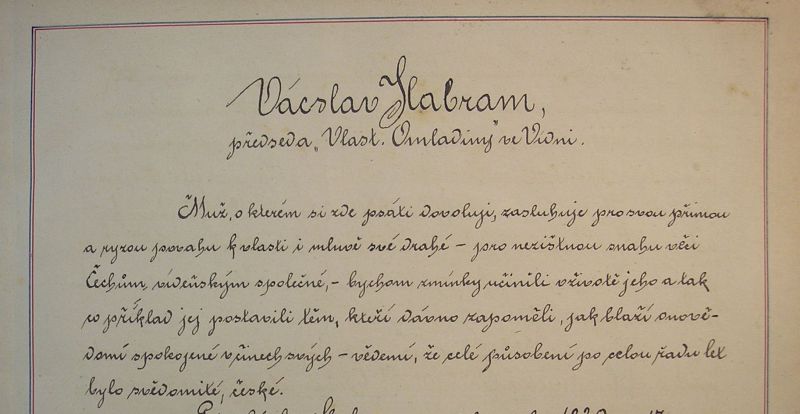 Václav Habram,
předseda „Vlast. Omladiny" ve Vídni.
Muž, o kterém si zde psáti dovoluji, zasluhuje pro svou přímou
a ryzou povahu k vlasti i mluvě své drahé – pro nezištnou snahu věci
Čechům vídeňským společné, – bychom zmínky učinili v životě jeho a tak
co příklad jej postavili těm, kteří dávno zapoměli, jak blaží onově-
domí spokojené v činech svých – vědomí, že celé působení po celou řadu let
bylo svědomité, české.